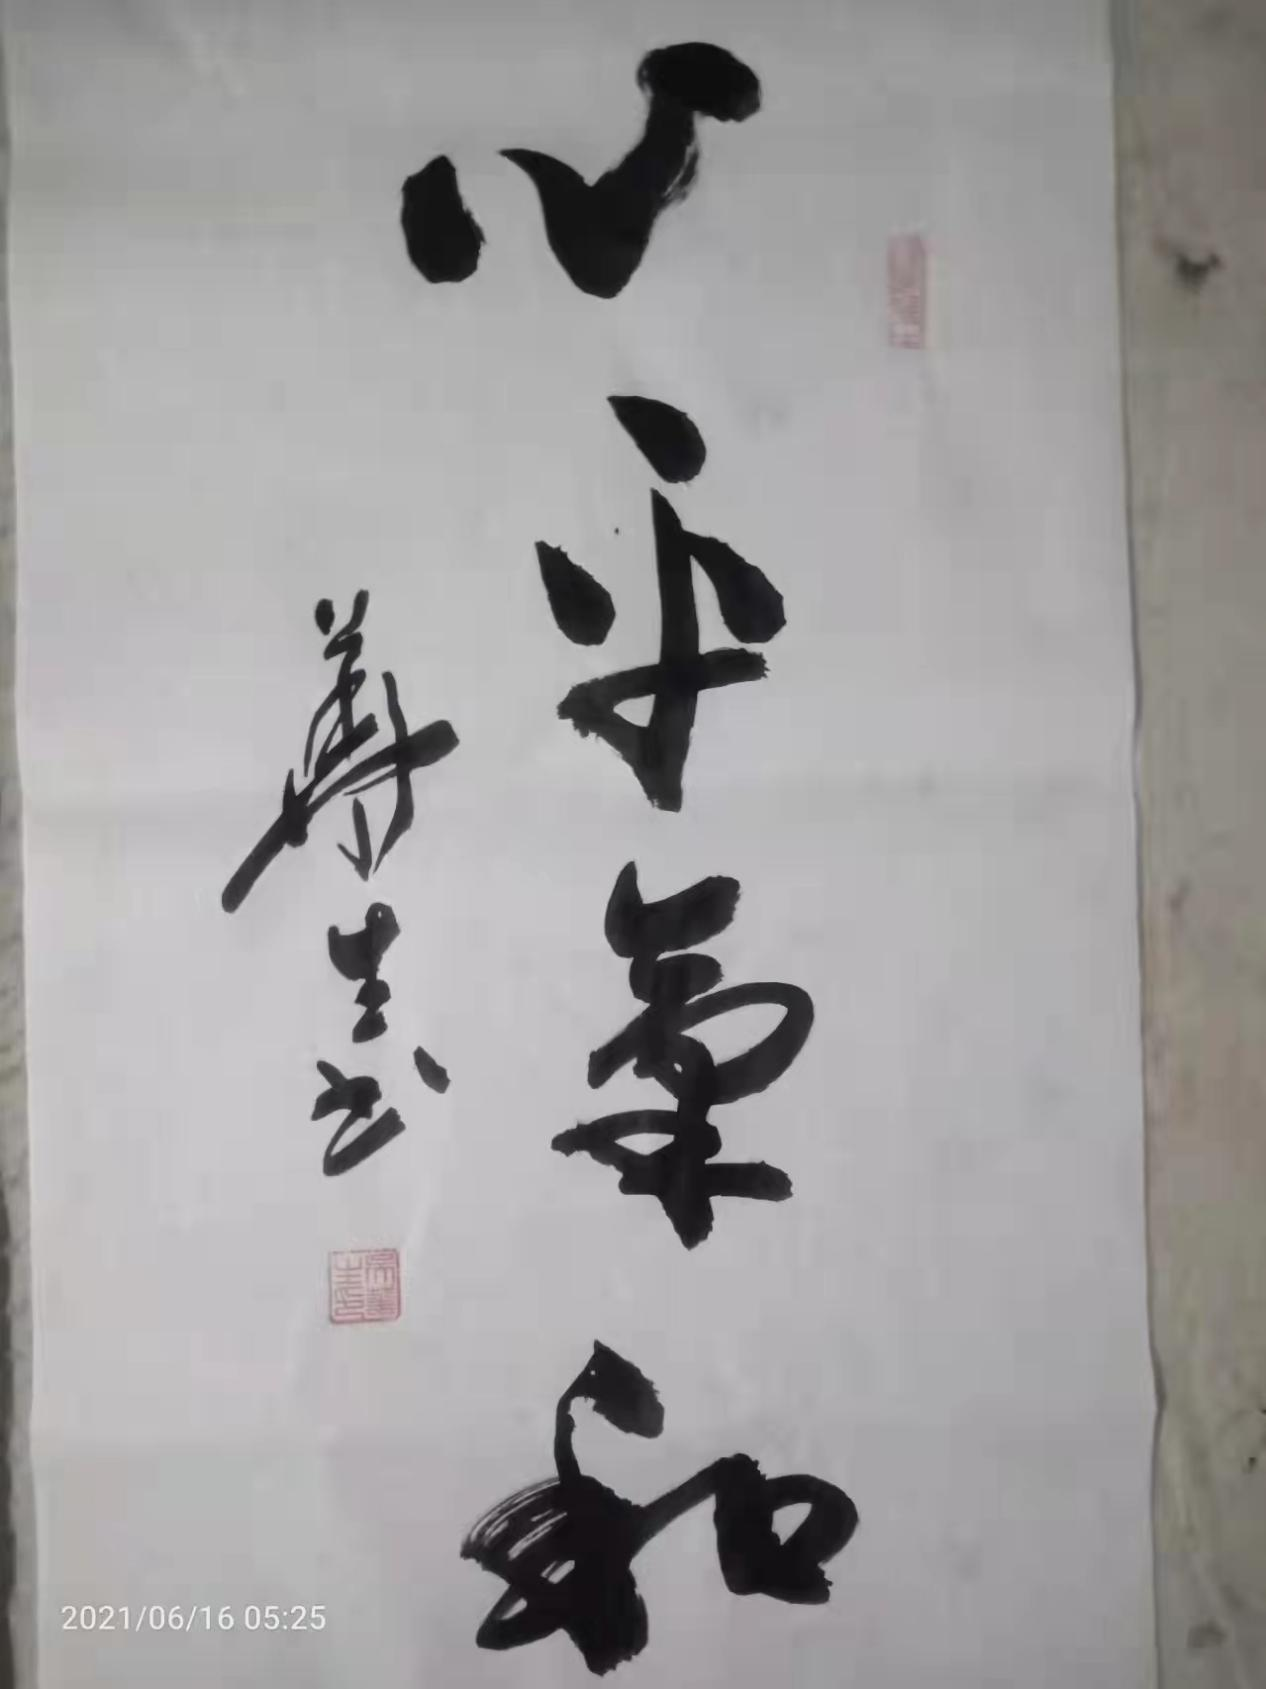 心平氣和
華生书
2021/06/16 05:25